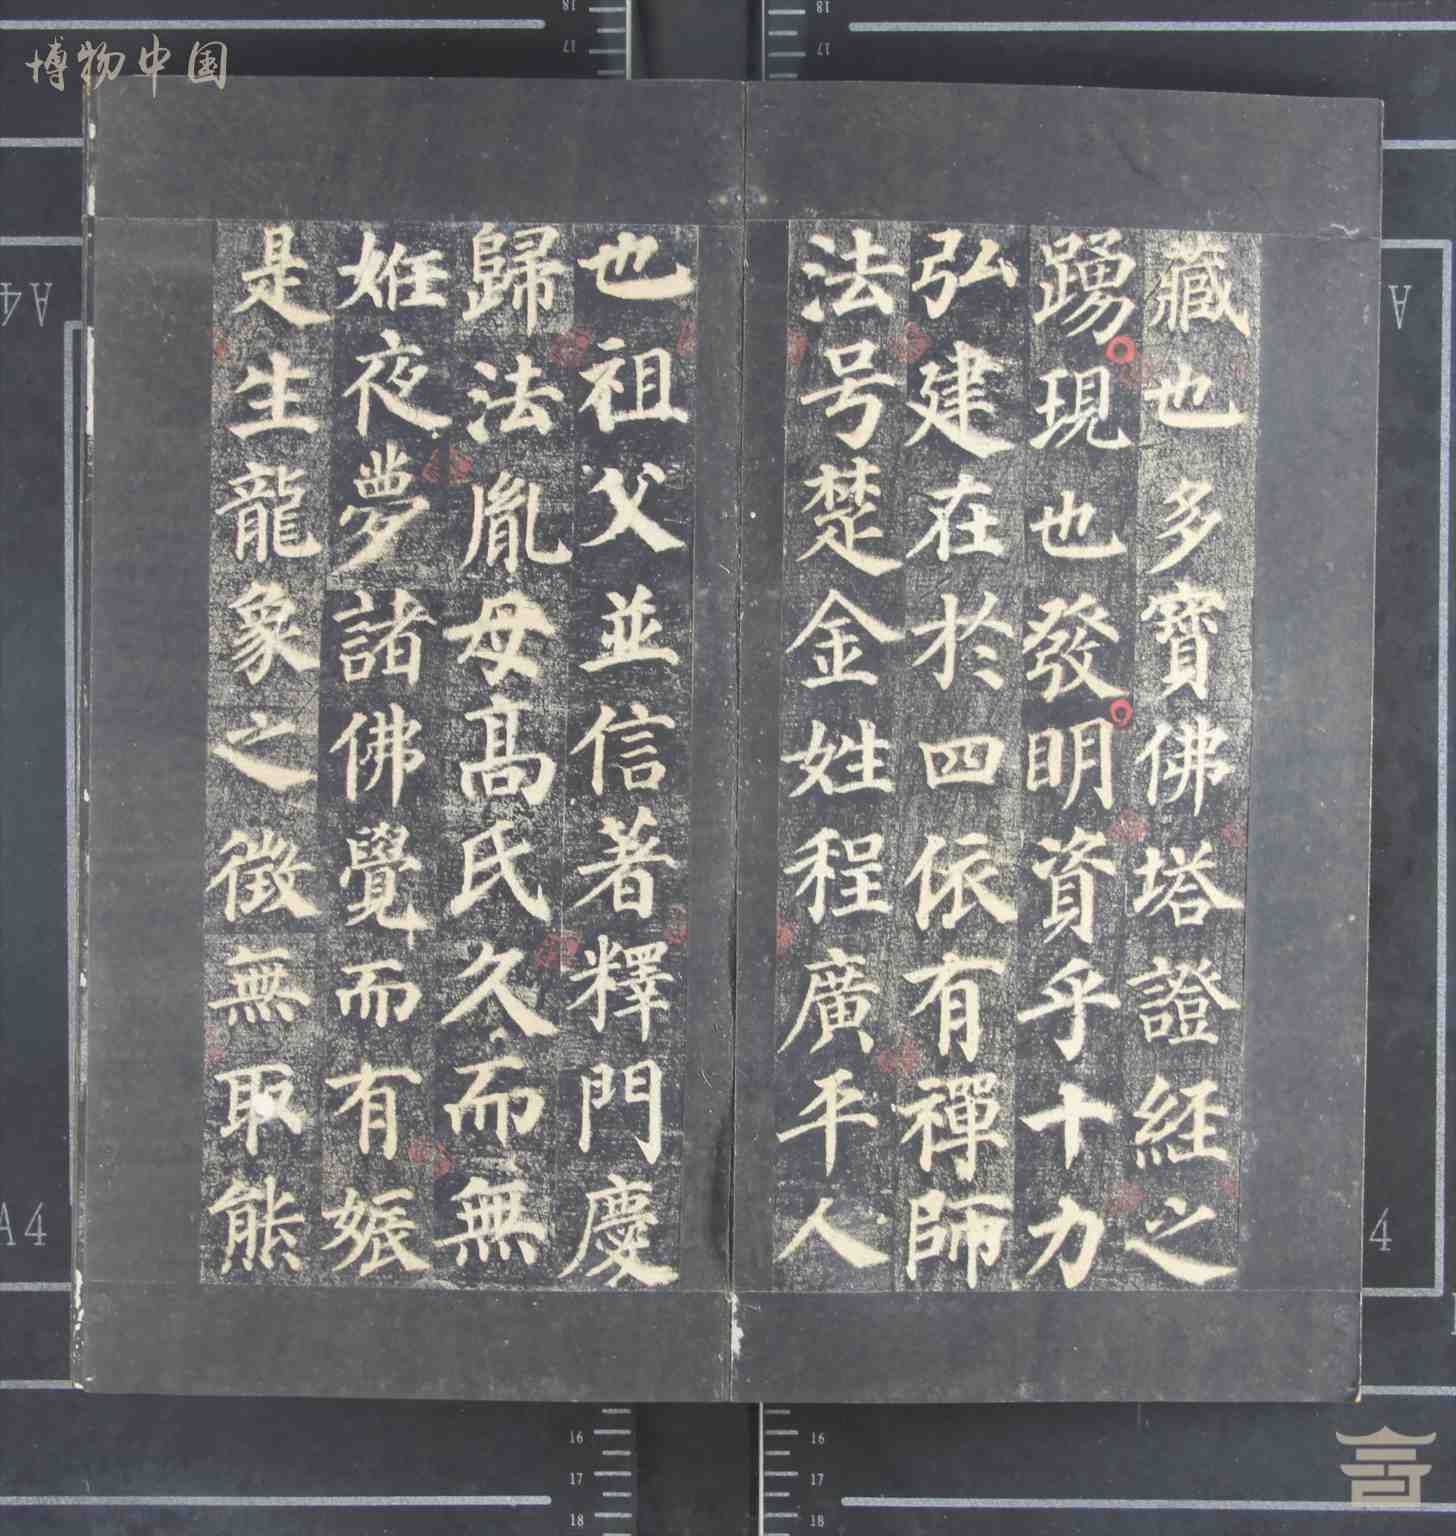 博物中国
藏也多寶佛塔證經之
踴現也發明資乎十力
弘建在於四依有禪師
法号楚金姓程廣平人
也祖父並信著釋門慶
歸法胤母高氏久而無
姙夜夢諸佛覺而有娠
是生龍象之徵無取熊
18
17
18
17
A4
A
A4
4
16
17
18
16
17
18